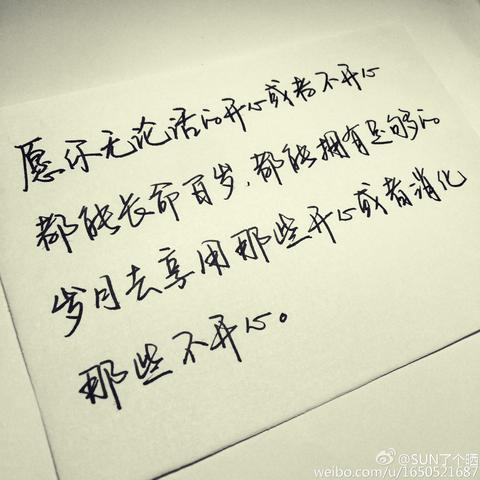 愿你无论活的开心或者不开心
都能长命百岁,都能拥有足够的
岁月去享用那些开心或者消化
那些不开心。
@SUN了个晒
weibo.com/u/1650521687